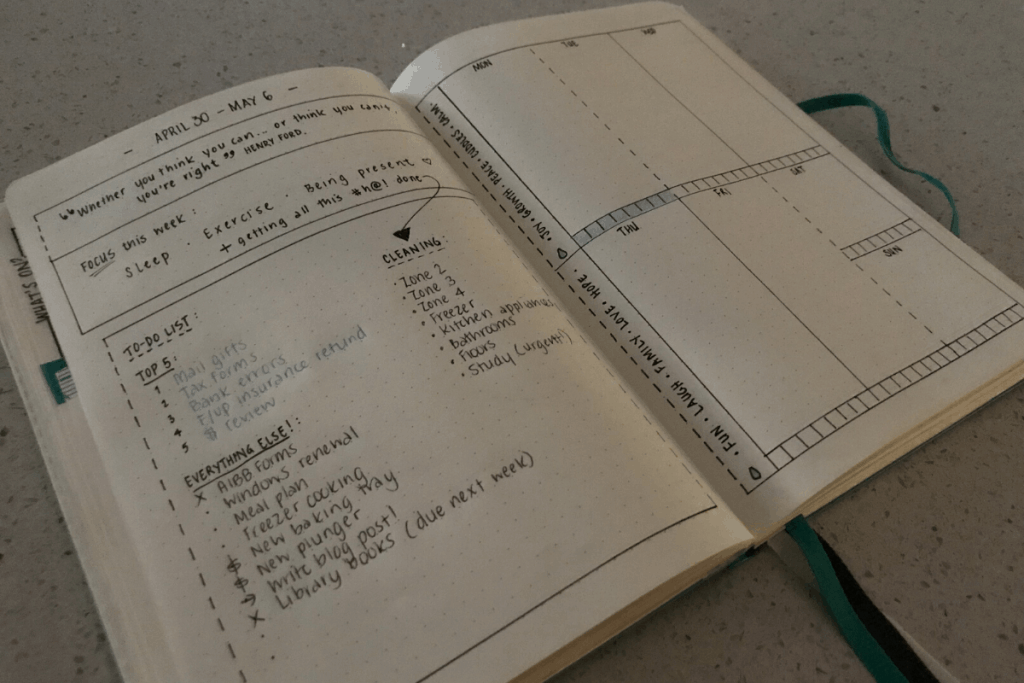 - APRIL 30 - MAY 6 -
"Whether you think you can... or think you can't,
you're right" HENRY FORD.
FOCUS this week:
Sleep · Exercise · Being present ♡
+ getting all this *h@! done
TO-DO LIST:
TOP 5:
1 Mail gifts
2 Tax forms
3 Bank errors
4 F/up insurance refund
5 $ review
EVERYTHING ELSE!:
x AIBB Forms
· Windows renewal
· Meal plan
· Freezer cooking
$ New baking tray
$ New plunger
→ Write blog post!
x Library books (due next week)
CLEANING:
· Zone 2
· Zone 3
· Zone 4
· Freezer
· Kitchen appliances
· Bathrooms
· Floors
· Study (urgent!)
· FUN · LAUGH · FAMILY · LOVE · HOPE ·
· JOY · GROWTH · PEACE · CUDDLES · CALM ·
MON
TUE
WED
THU
FRI
SAT
SUN
WHAT'S ON?